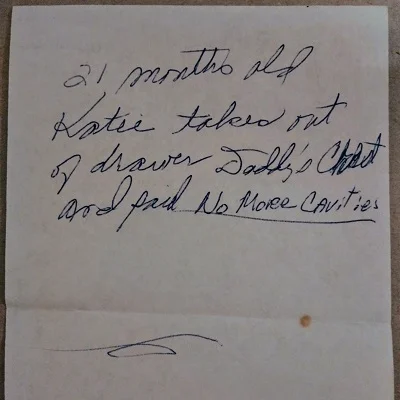 21 months old
Katie takes out
of drawer Daddy's Chart
and said No More Cavities